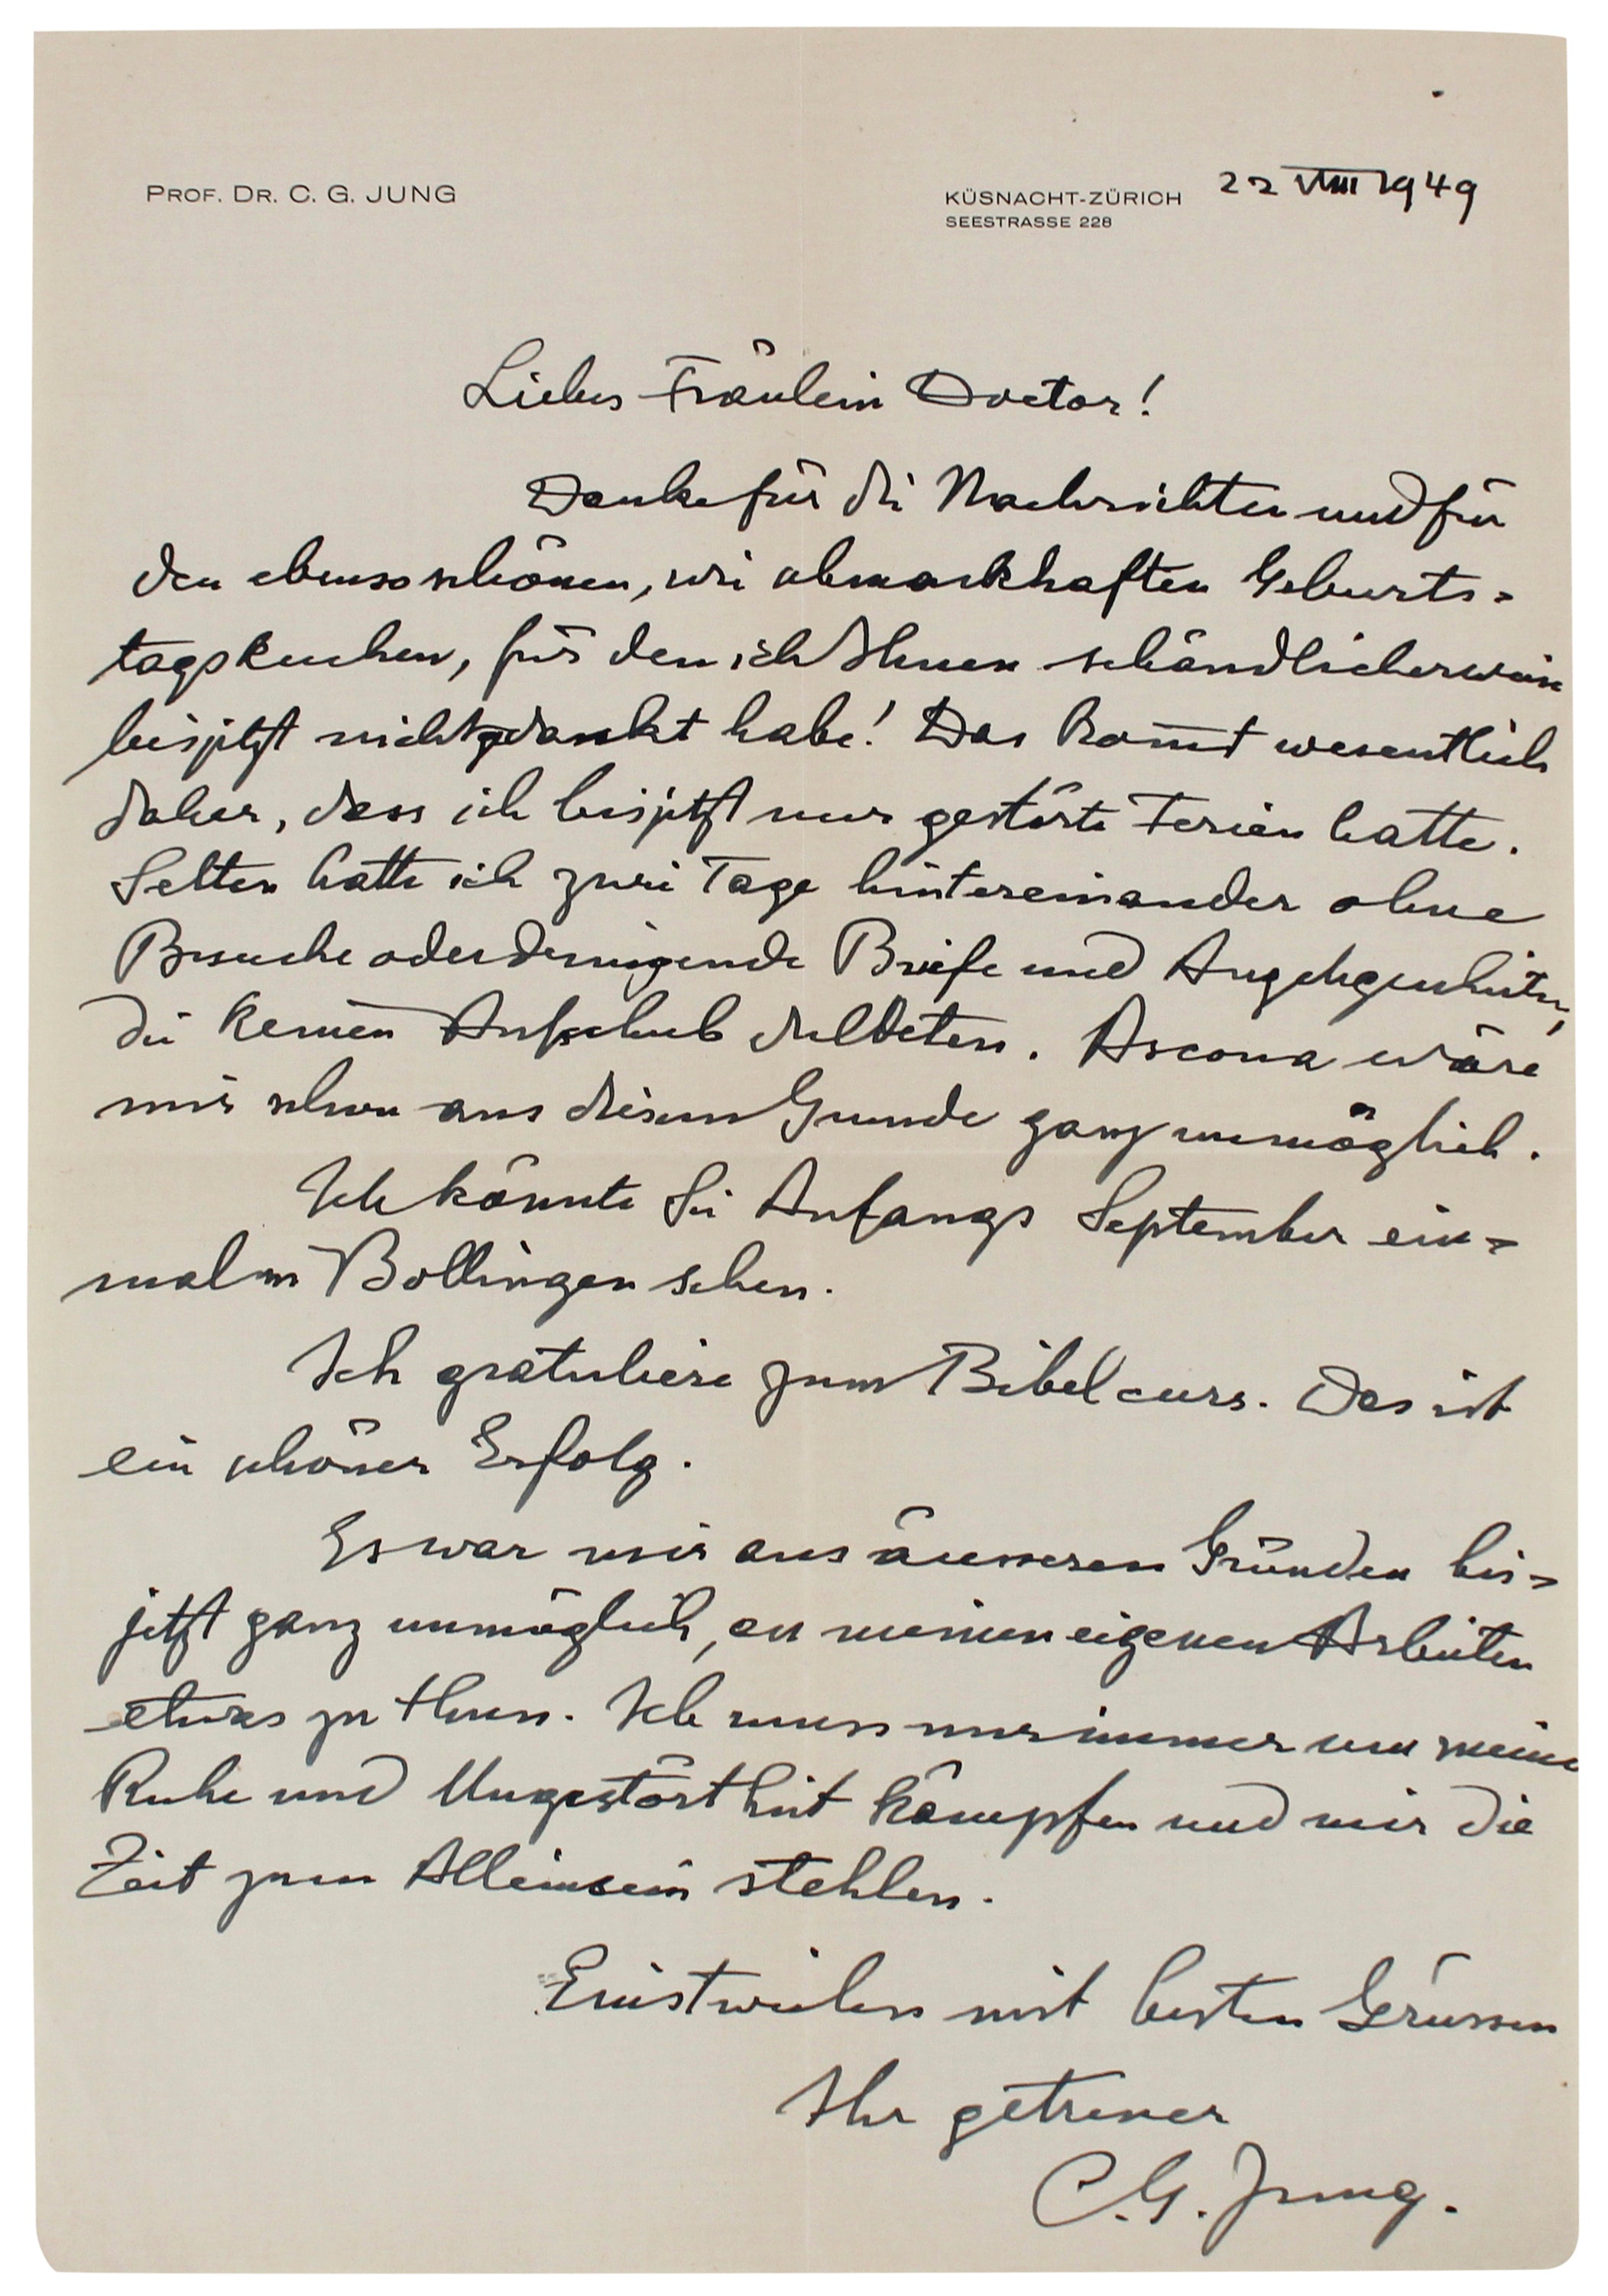 PROF. DR. C. G. JUNG
KÜSNACHT-ZÜRICH
SEESTRASSE 228
22 VIII 1949
Liebes Fräulein Doctor!
Danke für die Nachrichten und für
den ebenso schönen, wie schmackhaften Geburts=
tagskuchen, für den ich Ihnen schändlicherweise
bisjetzt nicht gedankt habe! Das kom̅t wesentlich
daher, dass ich bisjetzt nur gestörte Ferien hatte.
Selten hatte ich zwei Tage hintereinander ohne
Besuche oder dringende Briefe und Angelegenheiten,
die keinen Aufschub duldeten. Ascona wäre
mir schon aus diesem Grunde ganz unmöglich.
Ich könnte Sie Anfangs September ein=
mal in Bollingen sehen.
Ich gratuliere zum Bibelcurs. Das ist
ein schöner Erfolg.
Es war mir aus äusseren Gründen bis=
jetzt ganz unmöglich, an meinen eigenen Arbeiten
etwas zu thun. Ich muss nur immer um meine
Ruhe und Ungestörtheit kämpfen und mir die
Zeit zum Alleinsein stehlen.
Einstweilen mit besten Grüssen
Ihr getreuer
C. G. Jung.